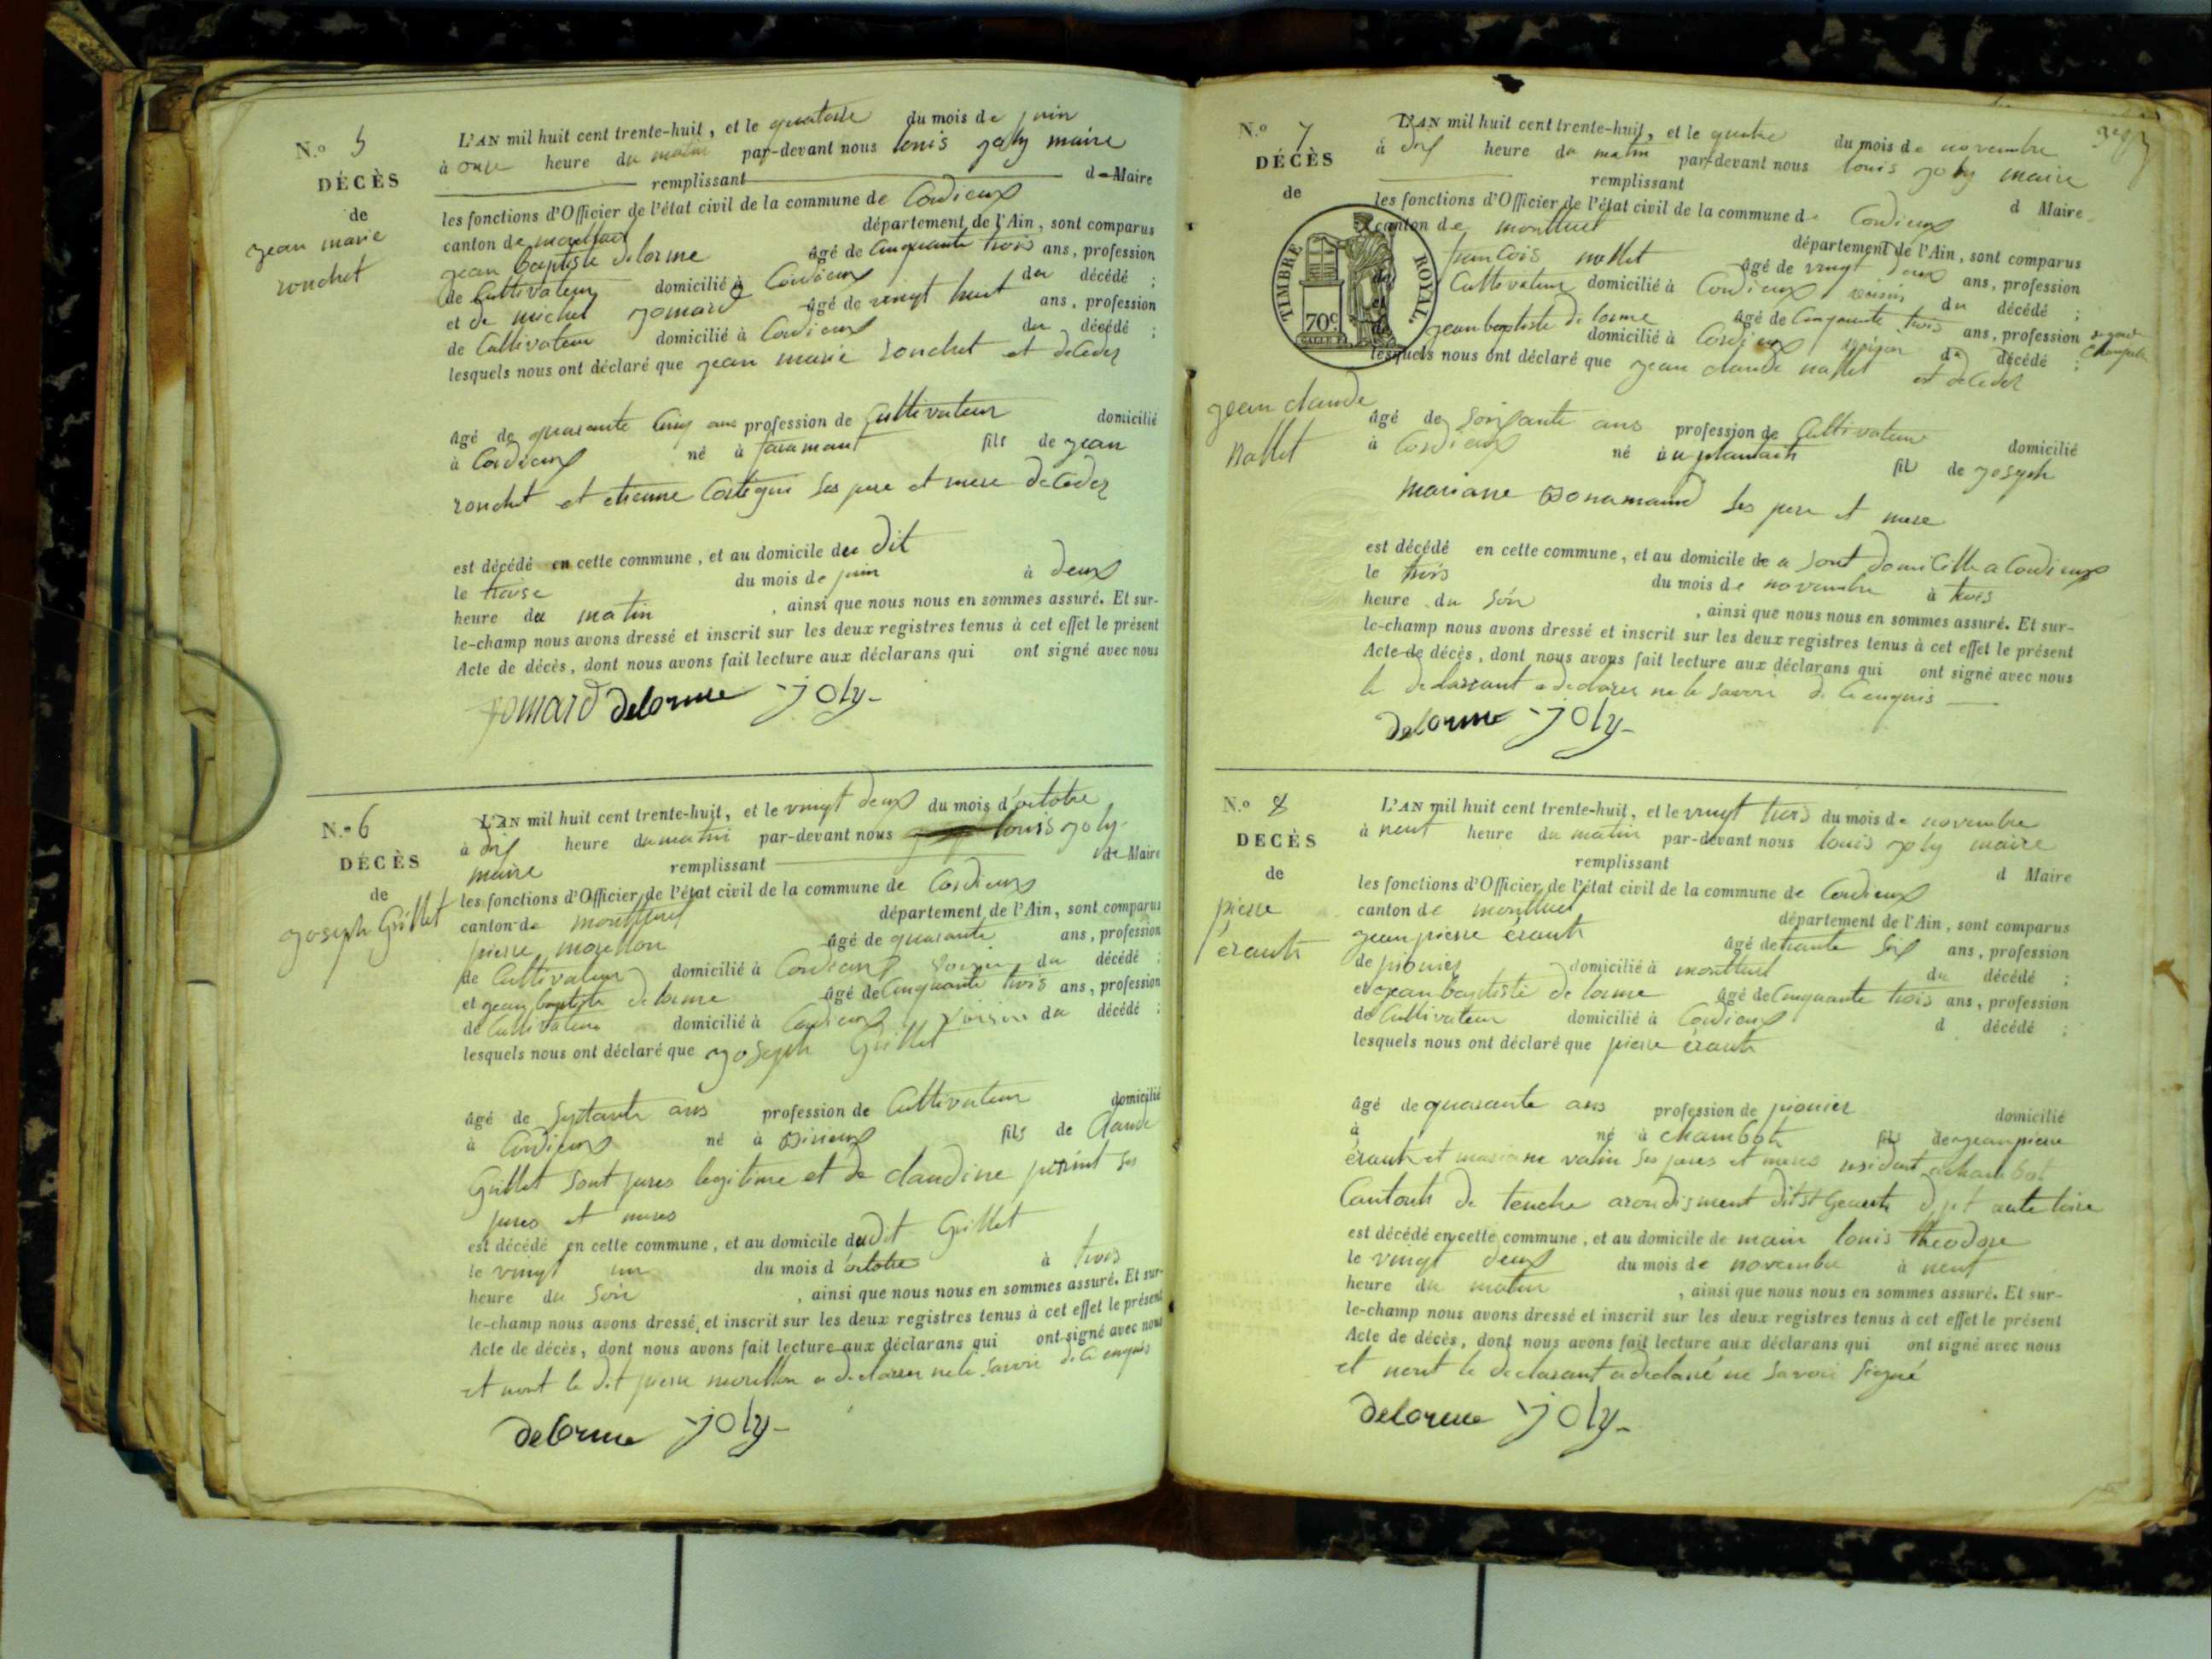 N.o 5
DÉCÈS
de
jean marie
ronchet
L'AN mil huit cent trente-huit, et le quatorse du mois de juin
à onze heure du matin par-devant nous louis joly maire
remplissant de Maire
les fonctions d'Officier de l'état civil de la commune de Cordieux
canton de montluel département de l'Ain, sont comparus
jean baptiste delorme âgé de Cinquante trois ans, profession
de Cultivateur domicilié à Cordieux du décédé ;
et de michel jomard âgé de vingt huit ans, profession
de Cultivateur domicilié à Cordieux du décédé ;
lesquels nous ont déclaré que jean marie ronchet et decedez
âgé de quarante Cinq ans profession de Cultivateur domicilié
à Cordieux né à faramant fils de jean
ronchet et etienne ses pere et mere decedez
est décédé en cette commune, et au domicile du dit
le traise du mois de juin à deux
heure du matin , ainsi que nous nous en sommes assuré. Et sur-
le-champ nous avons dressé et inscrit sur les deux registres tenus à cet effet le présent
Acte de décès, dont nous avons fait lecture aux déclarans qui ont signé avec nous
jomard delorme joly
N.o 6
DÉCÈS
de
joseph Grillet
L'AN mil huit cent trente-huit, et le vingt deux du mois d'octobre
à dix heure du matin par-devant nous louis joly
maire remplissant de Maire
les fonctions d'Officier de l'état civil de la commune de Cordieux
canton de montluel département de l'Ain, sont comparus
pierre morellon âgé de quarante ans, profession
de Cultivateur domicilié à Cordieux voisin du décédé ;
et jean baptiste delorme âgé de Cinquante trois ans, profession
de Cultivateur domicilié à Cordieux voisin du décédé ;
lesquels nous ont déclaré que joseph Grillet
âgé de septante ans profession de Cultivateur domicilié
à Cordieux né à Birieux fils de Claude
Grillet sont peres legitime et de claudine ses
peres et meres
est décédé en cette commune, et au domicile dudit Grillet
le vingt un du mois d'octobre à trois
heure du soir , ainsi que nous nous en sommes assuré. Et sur-
le-champ nous avons dressé et inscrit sur les deux registres tenus à cet effet le présent
Acte de décès, dont nous avons fait lecture aux déclarans qui ont signé avec nous
et nont le dit pierre morellon a declarer ne le savoir de ce enquis
delorme joly
N.o 7
DÉCÈS
de
TIMBRE ROYAL.
70c
jean claude
nallet
L'AN mil huit cent trente-huit, et le quatre du mois de novembre
à dix heure du matin par-devant nous louis joly maire
remplissant d Maire
les fonctions d'Officier de l'état civil de la commune d Cordieux
canton de montluel département de l'Ain, sont comparus
francois nallet âgé de vingt deux ans, profession
de Cultivateur domicilié à Cordieux voisin du décédé ;
et jean baptiste delorme âgé de Cinquante trois ans, profession
de domicilié à Cordieux voisin du décédé ;
lesquels nous ont déclaré que jean claude nallet et decedez
âgé de soixante ans profession de Cultivateur domicilié
à Cordieux né au plantait fils de joseph
mariane Bonamand ses pere et mere
est décédé en cette commune, et au domicile de a sont domicille a Cordieux
le trois du mois de novembre à trois
heure du soir , ainsi que nous nous en sommes assuré. Et sur-
le-champ nous avons dressé et inscrit sur les deux registres tenus à cet effet le présent
Acte de décès, dont nous avons fait lecture aux déclarans qui ont signé avec nous
le declarant a declarer ne le savoir de ce enquis
delorme joly
N.o 8
DECÈS
de
pierre
érauth
L'AN mil huit cent trente-huit, et le vingt trois du mois de novembre
à neuf heure du matin par-devant nous louis joly maire
remplissant d Maire
les fonctions d'Officier de l'état civil de la commune de Cordieux
canton de montluel département de l'Ain, sont comparus
jean pierre érauth âgé de trante six ans, profession
de pionier domicilié à montluel du décédé ;
et jean baptiste delorme âgé de Cinquante trois ans, profession
de Cultivateur domicilié à Cordieux d décédé ;
lesquels nous ont déclaré que pierre érauth
âgé de quarante ans profession de pionier domicilié
à né à chambon fils de jean pierre
érauth et mariane valin ses peres et meres residant a
Cantonts de tenche arondisment dit
est décédé en cette commune, et au domicile de main louis theodore
le vingt deux du mois de novembre à neuf
heure du matin , ainsi que nous nous en sommes assuré. Et sur-
le-champ nous avons dressé et inscrit sur les deux registres tenus à cet effet le présent
Acte de décès, dont nous avons fait lecture aux déclarans qui ont signé avec nous
et nont le declarant a declaré ne savoir signé
delorme joly